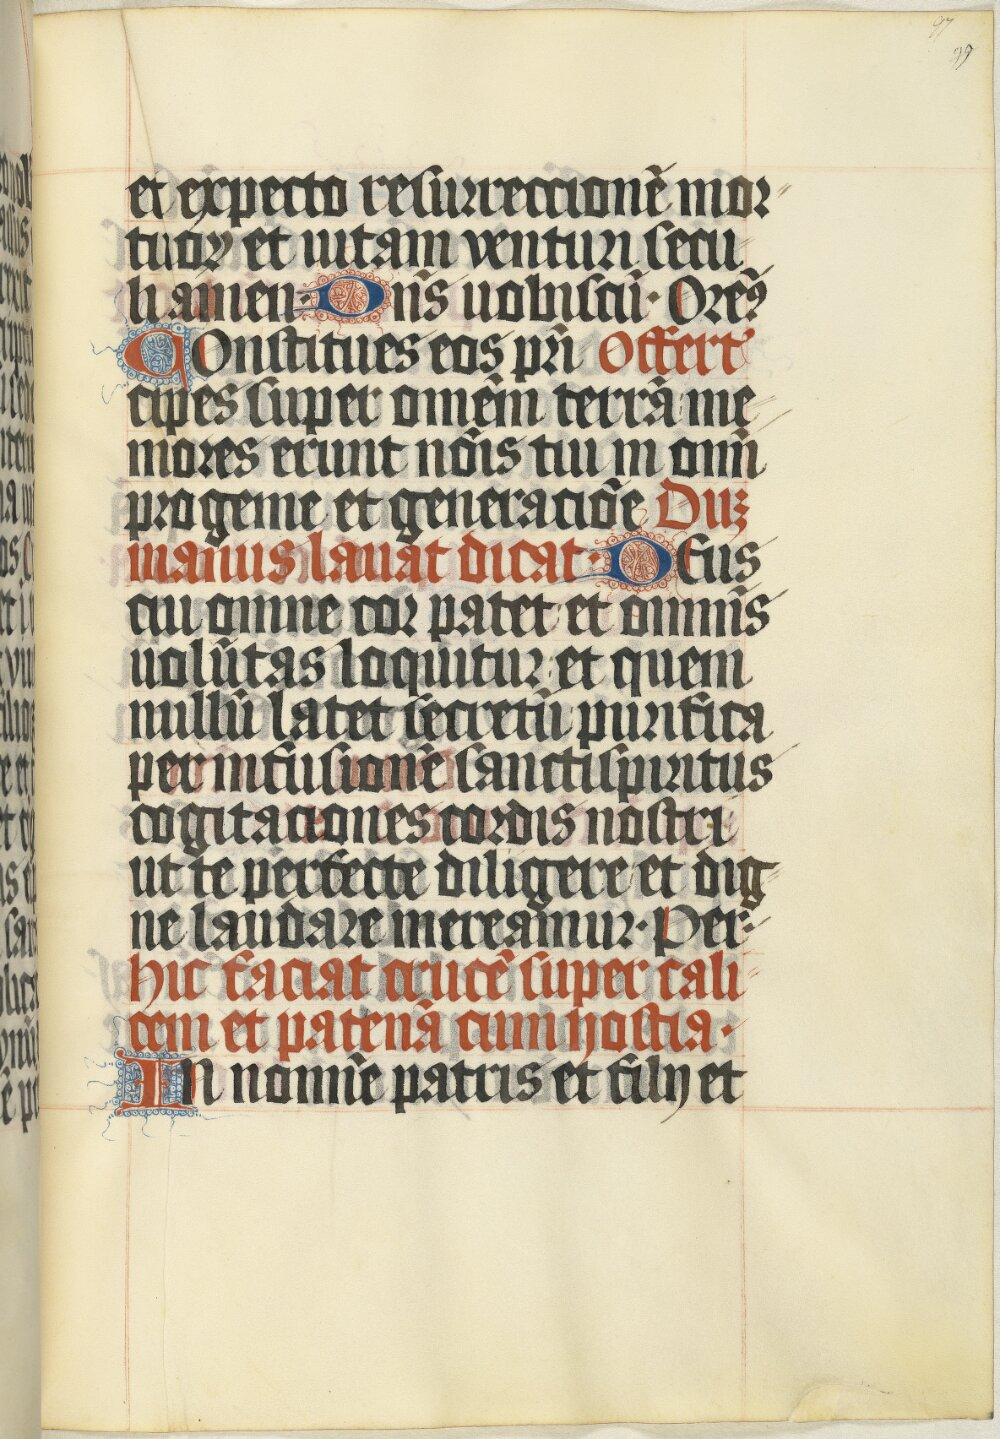 97
99
et expecto resurreccionē mor
tuoꝝ et uitam venturi secu
li amen· Dn̄s uobiscū· Orem̄ꝰ
Constitues eos pri᷑n Offert᷑
cipes super omēm terrā me
mores erunt nōis tui in omī
progenie et generacōe Duꝫ
manus lauat dicat· Deus
cui omne cor patet et omnīs
uolūtas loquitur et quem
nullū latet secretū purifica
per infusionē sanctispiritus
cogitaciones cordis nostri
ut te perfecte diligere et dig
ne laudare mereamur· Per·
Hic faciat crucē super cali
cem et patenā cum hostia·
In nomīe patris et filij et